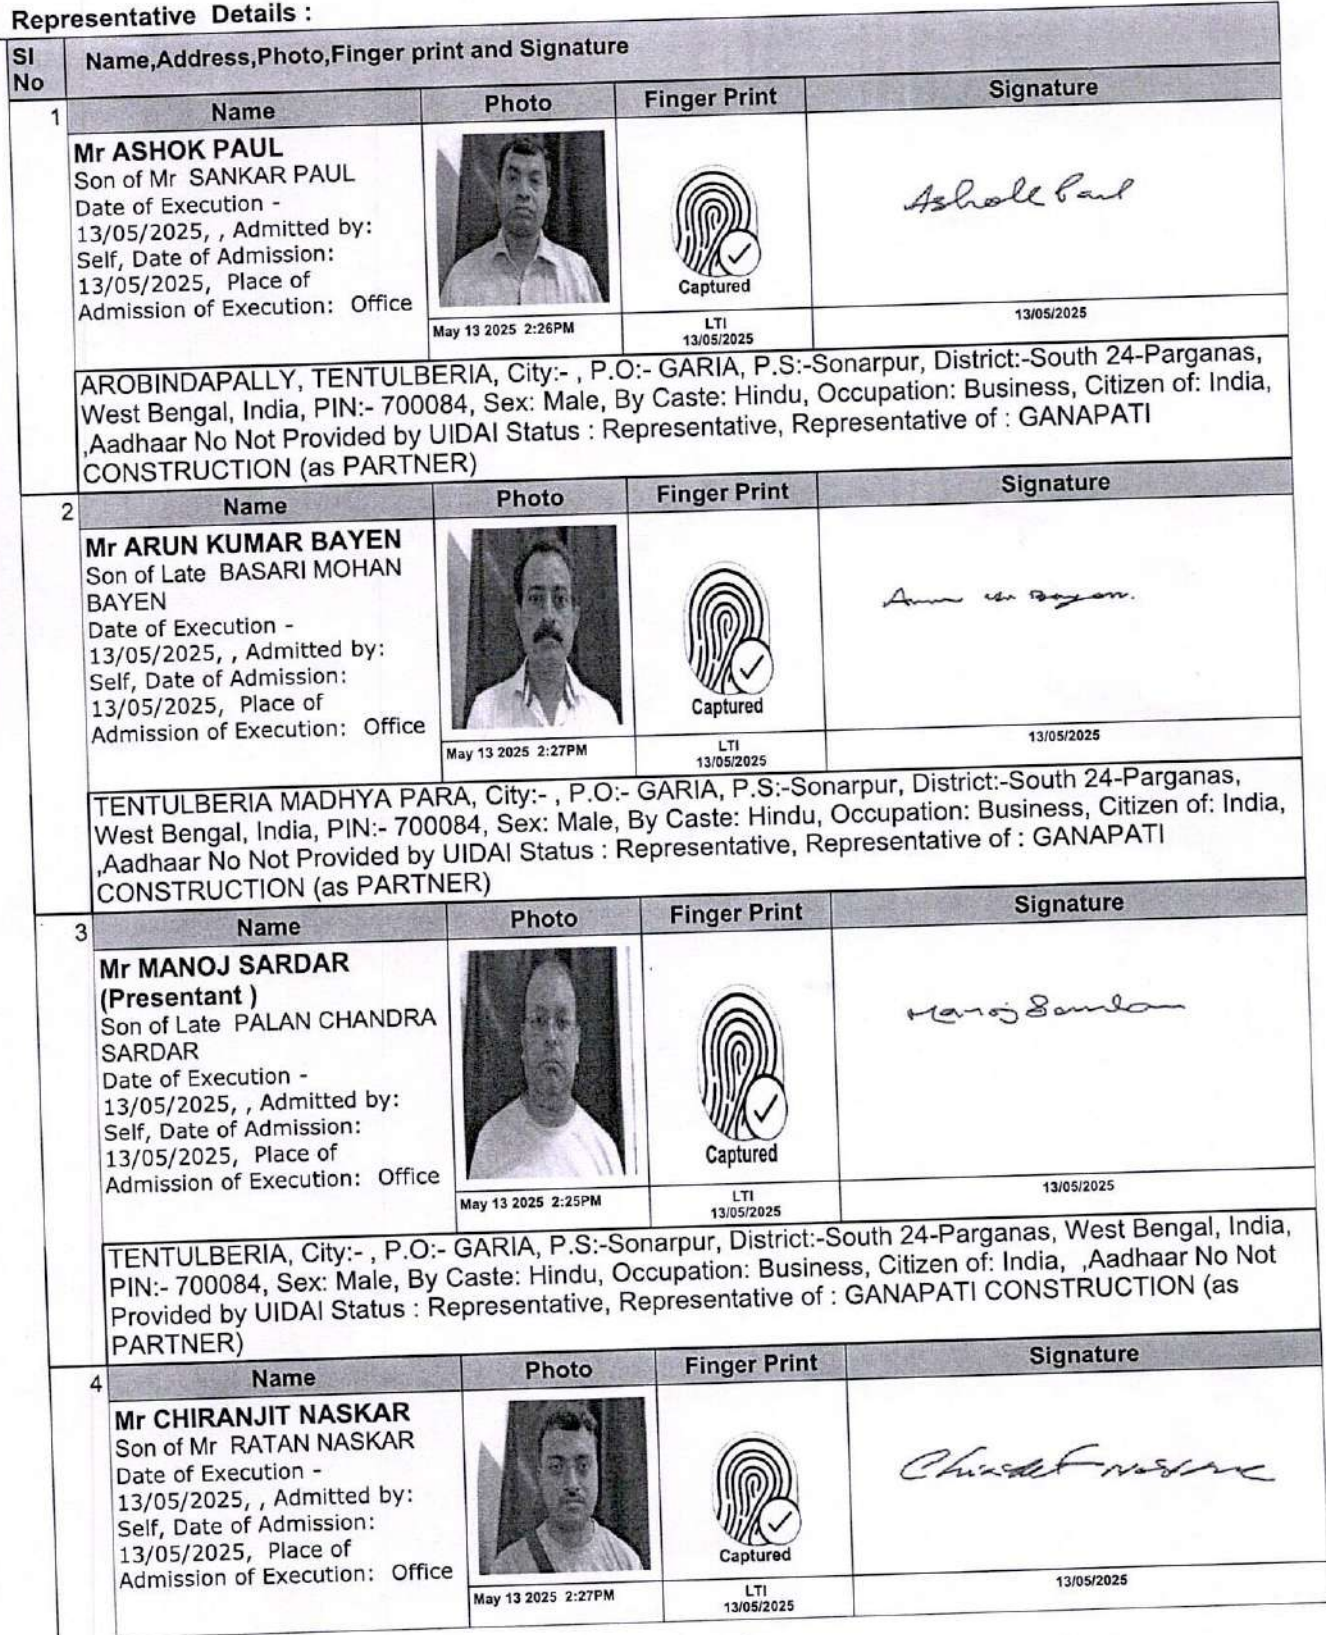 Representative Details :
Sl No
Name,Address,Photo,Finger print and Signature
1
Name
Photo
Finger Print
Signature
Mr ASHOK PAUL
Son of Mr SANKAR PAUL
Date of Execution -
13/05/2025, , Admitted by:
Self, Date of Admission:
13/05/2025, Place of
Admission of Execution: Office
Captured
Ashok Paul
May 13 2025 2:26PM
LTI
13/05/2025
13/05/2025
AROBINDAPALLY, TENTULBERIA, City:- , P.O:- GARIA, P.S:-Sonarpur, District:-South 24-Parganas,
West Bengal, India, PIN:- 700084, Sex: Male, By Caste: Hindu, Occupation: Business, Citizen of: India,
,Aadhaar No Not Provided by UIDAI Status : Representative, Representative of : GANAPATI
CONSTRUCTION (as PARTNER)
2
Name
Photo
Finger Print
Signature
Mr ARUN KUMAR BAYEN
Son of Late BASARI MOHAN
BAYEN
Date of Execution -
13/05/2025, , Admitted by:
Self, Date of Admission:
13/05/2025, Place of
Admission of Execution: Office
Captured
May 13 2025 2:27PM
LTI
13/05/2025
13/05/2025
TENTULBERIA MADHYA PARA, City:- , P.O:- GARIA, P.S:-Sonarpur, District:-South 24-Parganas,
West Bengal, India, PIN:- 700084, Sex: Male, By Caste: Hindu, Occupation: Business, Citizen of: India,
,Aadhaar No Not Provided by UIDAI Status : Representative, Representative of : GANAPATI
CONSTRUCTION (as PARTNER)
3
Name
Photo
Finger Print
Signature
Mr MANOJ SARDAR
(Presentant )
Son of Late PALAN CHANDRA
SARDAR
Date of Execution -
13/05/2025, , Admitted by:
Self, Date of Admission:
13/05/2025, Place of
Admission of Execution: Office
Captured
Manoj Sardar
May 13 2025 2:25PM
LTI
13/05/2025
13/05/2025
TENTULBERIA, City:- , P.O:- GARIA, P.S:-Sonarpur, District:-South 24-Parganas, West Bengal, India,
PIN:- 700084, Sex: Male, By Caste: Hindu, Occupation: Business, Citizen of: India, ,Aadhaar No Not
Provided by UIDAI Status : Representative, Representative of : GANAPATI CONSTRUCTION (as
PARTNER)
4
Name
Photo
Finger Print
Signature
Mr CHIRANJIT NASKAR
Son of Mr RATAN NASKAR
Date of Execution -
13/05/2025, , Admitted by:
Self, Date of Admission:
13/05/2025, Place of
Admission of Execution: Office
Captured
May 13 2025 2:27PM
LTI
13/05/2025
13/05/2025